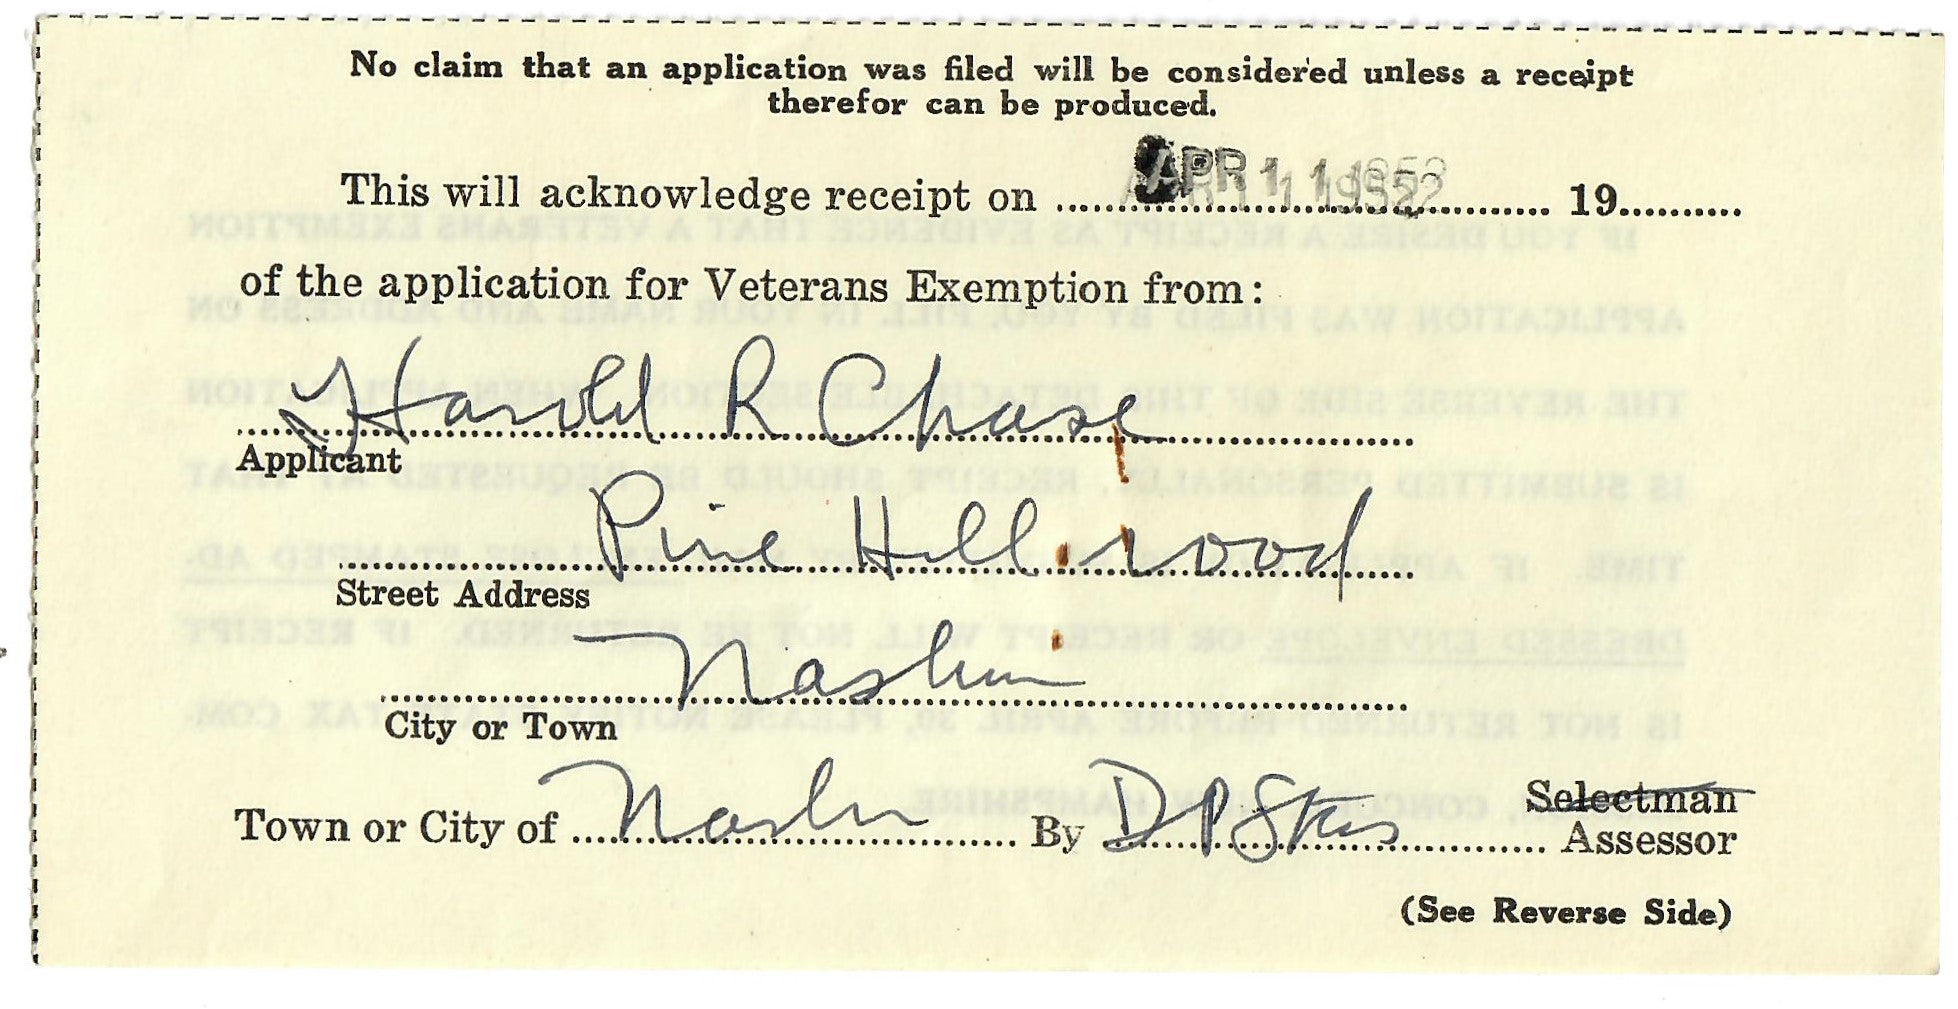 No claim that an application was filed will be considered unless a receipt
therefor can be produced.
This will acknowledge receipt on APR 11 1952 19
of the application for Veterans Exemption from:
Harold R Chase
Applicant
Pine Hill rood
Street Address
Nashua
City or Town
Town or City of Nashua By Selectman
Assessor
(See Reverse Side)